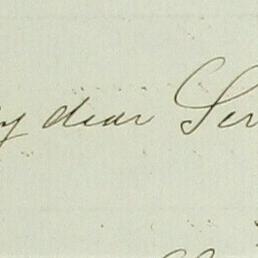 y dear Ser